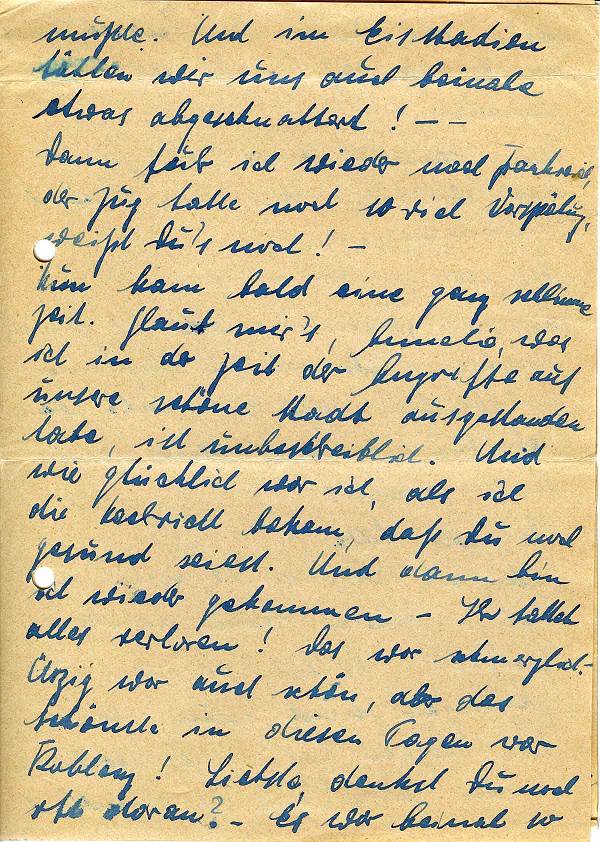 mußte. Und im Eisstadion
hätten wir uns auch beinahe
etwas abgeschnattert! — —
Dann fuhr ich wieder nach Frankreich,
der Zug hatte noch so viel Verspätung,
weißt Du's noch! —
Nun kam bald eine ganz seltsame
Zeit. Glaub mir's, Annelie, was
ich in der Zeit der Angriffe auf
unsere schöne Stadt ausgestanden
habe, ist unbeschreiblich. Und
wie glücklich war ich, als ich
die Nachricht bekam, daß Du noch
gesund seiest. Und dann bin
ich wieder gekommen – Ihr hattet
alles verloren! Das war schmerzlich.–
Ürzig war auch schön, aber das
Schönste in diesen Tagen war
Koblenz! Liebste, denkst Du noch
oft daran? – Es war beinah so